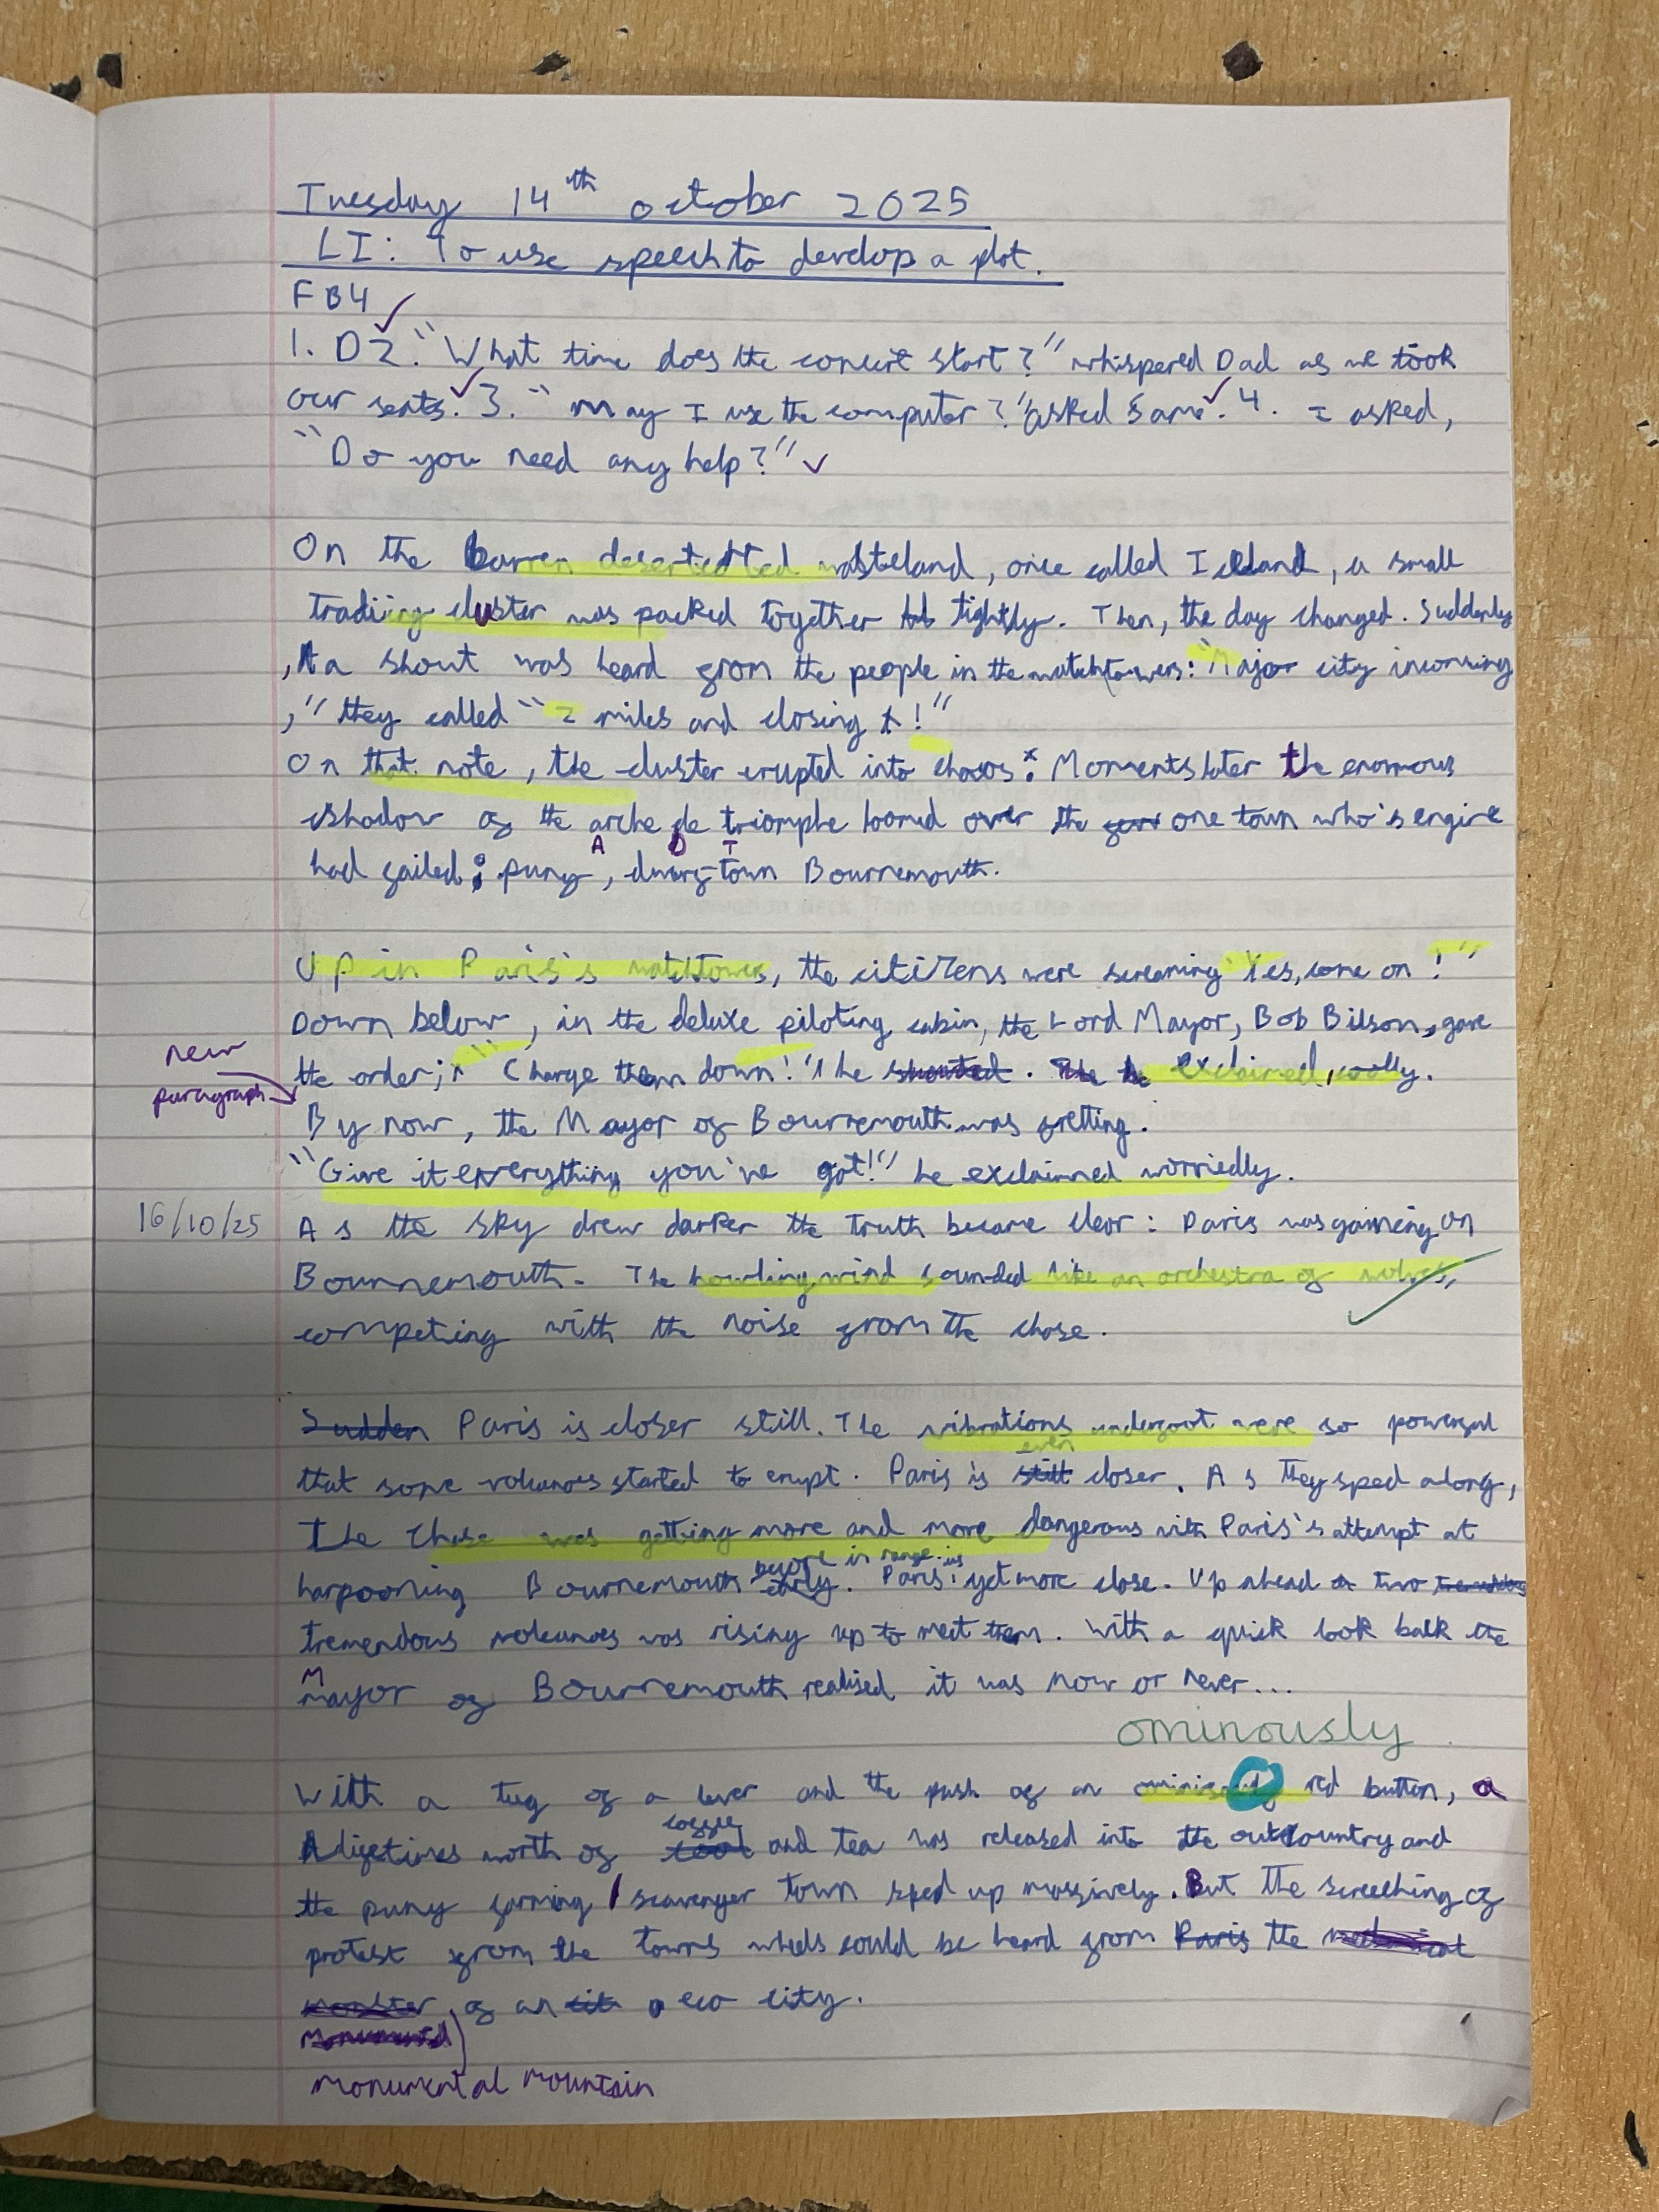 Tuesday 14th october 2025
LI: To use speech to develop a plot.
FB4
1. D 2. "What time does the concert start?" whispered Dad as we took
our seats. 3. "May I use the computer?" asked Sam. 4. I asked,
"Do you need any help?"
On the barren desertedted wasteland, once called Iceland, a small
trading cluster was packed together tightly. Then, the day changed. Suddenly
, a shout was heard from the people in the watchtowers: "Major city incoming
," they called "2 miles and closing!"
On that note, the cluster erupted into choas: Moments later the enormous
shadow of the arche de triomphe loomed over the one town who's engine
A D T
had failed: puny, dwarf-town Bournemouth.
Up in Paris's watchtowers, the citizens were screaming "Yes, come on!"
Down below, in the deluxe piloting cabin, the Lord Mayor, Bob Bilson, gave
new
the order; "Charge them down!" he shouted. exclaimed, coolly.
paragraph
By now, the Mayor of Bournemouth was fretting.
"Give it everything you've got!" he exclaimed worriedly.
16/10/25
As the sky drew darker the truth became clear: Paris was gaineing on
Bournemouth. The howling wind sounded like an orchestra of wolves,
competeing with the noise from the chase.
Sudden Paris is closer still. The vibrations underfoot were so powerful
even
that some volcanoes started to erupt. Paris is still closer. As they sped along,
the chase was getting more and more dangerous with Paris's attempt at
before in range. is
harpooning Bournemouth early. Paris yet more close. Up ahead two
tremendous volcanoes was rising up to meet them. With a quick look back the
M
mayor of Bournemouth realised it was now or never...
ominously
With a tug of a lever and the push of an red button, a
coffee
lifetimes worth of and tea was released into the outcountry and
the puny farming/scavenger town sped up massively. But the screeching of
protest from the towns wheels could be heard from Paris the
monster of an eco city.
monumental mountain